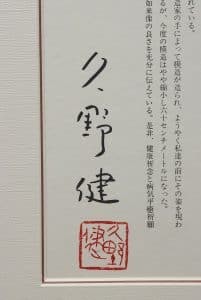 れている。
造家の手によって模造が造られ、ようやく私達の前にその姿を現わ
るが、今度の模造はやや縮小し六十センチメートルになった。
如来像の良さを充分に伝えている。是非、健康祈念と病気平癒祈願
久野 健
久野健